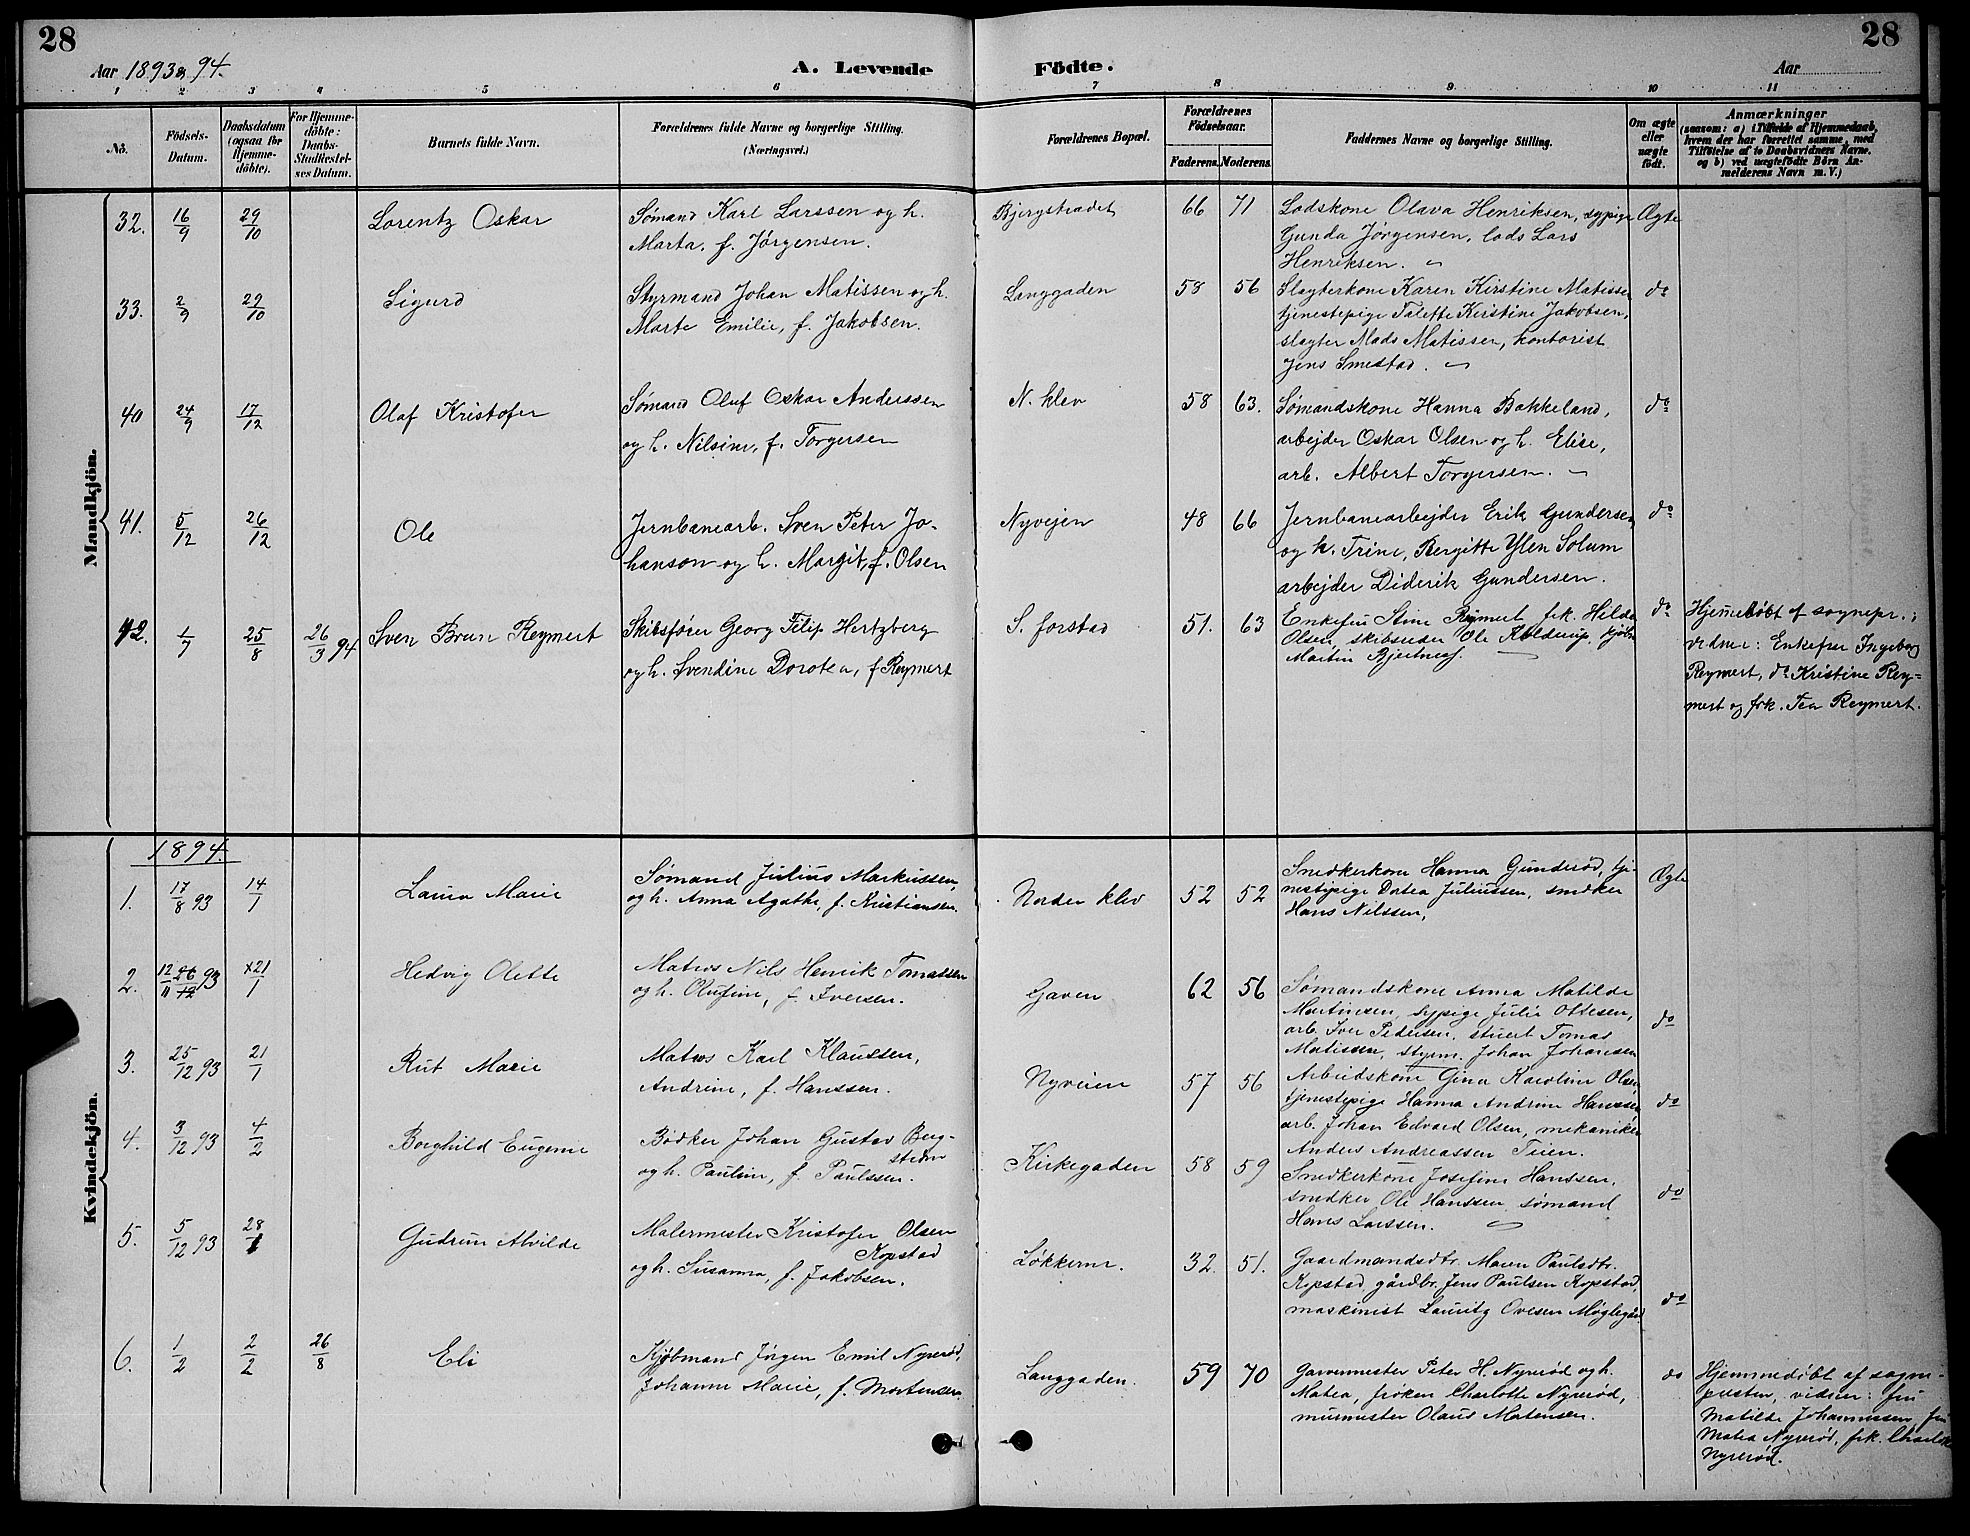 28
28
Aar 1893 & 94.
A. Levende
Födte.
Aar
1 2 3 4 5 6 7 8 9 10 11
No.
Födsels-Datum.
Daabsdatum (ogsaa for Hjemme-döbte).
For Hjemme-döbte: Daabs-Stadfæstel-ses Datum.
Barnets fulde Navn.
Forældrenes fulde Navne og borgerlige Stilling. (Næringsvei.)
Forældrenes Bopæl.
Forældrenes Födselsaar.
Faderens. Moderens.
Faddernes Navne og borgerlige Stilling.
Om ægte eller uægte födt.
Anmærkninger
(saasom: a) i Tilfælde af Hjemmedaab,
hvem der har forrettet samme, med
Tilföielse af to Daabsvidners Navne.
og b) ved uægtefödte Börn An-
melderens Navn m. V.)
Mandkjön.
32. 16/9 29/10 Lorentz Oskar
Sømand Karl Larssen og h.
Marta, f. Jørgensen.
Bjergstradet 66 71
Lodskone Olava Henriksen, sypige
Gunda Jørgensen, lods Lars
Henriksen.
Ægte
33. 2/9 29/10 Sigurd
Styrmand Johan Matissen og h.
Marte Emilie, f. Jakobsen.
Langgaden 58 56
Slagterkone Karen Kirstine Matissen
tjenestepige Talette Kirstine Jakobsen,
slagter Mads Matissen, kontorist
Jens Smestad.
do
40 24/9 17/12 Olaf Kristofer
Sømand Oluf Oskar Anderssen
og h. Nilsine, f. Torgersen
N. klev 58 63.
Sømandskone Hanna Bakkeland,
arbejder Oskar Olsen og h. Elise,
arb. Albert Torgersen.
do
41. 5/12 26/12 Ole
Jernbanearb. Sven Peter Jo-
hanson og h. Margit, f. Olsen
Nyvejen 48 66
Jernbanearbejder Erik Gundersen
og h. Trine, Bergitte Ylen Solum
arbejder Diderik Gundersen.
do
42. 1/7 25/8 26/3 94 Sven Brun Reymert
Skibsfører Georg Filip Hertzberg
og h. Svendine Dorotea, f. Reymert
S. forstad 51. 63
Enkefru Stine Reymert, frk. Hilda
Olsen, skibsreder Ole Kolderup, kjøbm
Martin Bjeltnes.
do
Hjemmedøbt af sognepr.;
vidner: Enkefrer Ingeborg
Reymert, do Kristine Rey-
mert og frk. Tea Reymert.
Kvindekjön.
1894.
1. 17/8 93 14/1 Laura Marie
Sømand Julius Markussen,
og h. Anna Agathe, f. Kristiansen.
Norder klev 52 52
Snedkerkone Hanna Gunderød, tje-
nestepige Dotea Juliussen, snedker
Hans Nilssen,
Ægte
2. 12/11 26/12 93 x21/1 Hedvig Olette
Matros Nils Henrik Tomassen
og h. Olufine, f. Iversen.
Gaven 62 56
Sømandskone Anna Matilde
Martinsen, sypige Julie Ottesen,
arb. Iver Pedersen, stuert Tomas
Matissen, styrm. Johan Johansen
do
3. 25/12 93 21/1 Rut Marie
Matros Karl Klaussen,
Andrine, f. Hanssen.
Nyveien 57 56
Arbeidskone Gina Karoline Olsen
tjenestepige Hanna Andrine Hanssen
arb. Johan Edvard Olsen, mekaniker
Anders Andreassen Teien.
do
4. 3/12 93 4/2 Borghild Eugenie
Bødker Johan Gustav Berg-
strøm
og h. Pauline, f. Paulssen.
Kirkegaden 58 59
Snedkerkone Josefine Hanssen,
snedker Ole Hanssen, sømand
Hans Larssen.
do
5. 5/12 93 28/1 Gudrun Alvilde
Malermester Kristofer Olsen
Kopstad
og h. Susanna, f. Jakobsen.
Løkkerne. 32. 51.
Gaardmandsdtr. Maren Paulsdtr.
Kopstad, gårdbr. Jens Paulsen Kopstad,
maskinist Lauritz Ovesen Møglegård
do
6. 1/2 2/2 26/8 Eli
Kjøbmand Jørgen Emil Nyrerød,
Johanne Marie, f. Mortensen.
Langgaden. 59 70
Garvermester Peter H. Nyrerød og h.
Matea, frøken Charlotte Nyrerød,
murmester Olaus Matensen.
do
Hjemmedøbt af sogne-
presten, vidner: fru
Matilde Johannessen, fru
Matea Nyrerød, frk. Charlotte
Nyrerød.